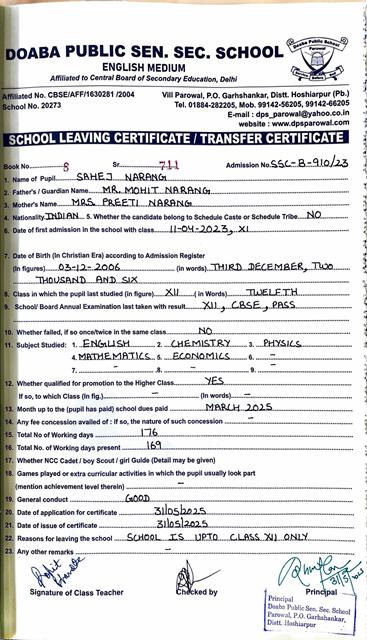 DOABA PUBLIC SEN. SEC. SCHOOL
ENGLISH MEDIUM
Affiliated to Central Board of Secondary Education, Delhi
Affiliated No. CBSE/AFF/1630281 /2004
School No. 20273
Vill Parowal, P.O. Garhshankar, Distt. Hoshiarpur (Pb.)
Tel. 01884-282205, Mob. 99142-56205, 99142-66205
E-mail : dps_parowal@yahoo.co.in
website : www.dpsparowal.com
SCHOOL LEAVING CERTIFICATE / TRANSFER CERTIFICATE
Book No. 8 Sr. 711 Admission No. SSC-B-910/23
1. Name of Pupil SAHEJ NARANG
2. Father's / Guardian Name MR. MOHIT NARANG
3. Mother's Name MRS. PREETI NARANG
4. Nationality INDIAN 5. Whether the candidate belong to Schedule Caste or Schedule Tribe NO
6. Date of first admission in the school with class 11-04-2023, XI
7. Date of Birth (in Christian Era) according to Admission Register
(in figures) 03-12-2006 (in words) THIRD DECEMBER, TWO
THOUSAND AND SIX
8. Class in which the pupil last studied (in figure) XII ( in Words) TWELFTH
9. School/ Board Annual Examination last taken with result XII, CBSE, PASS
10. Whether failed, if so once/twice in the same class NO
11. Subject Studied: 1. ENGLISH 2. CHEMISTRY 3. PHYSICS
4. MATHEMATICS 5. ECONOMICS 6. -
7. - 8. - 9. -
12. Whether qualified for promotion to the Higher Class YES
If so, to which Class (In fig.) - (In Words) -
13. Month up to the (pupil has paid) school dues paid MARCH 2025
14. Any fee concession availed of : if so, the nature of such concession -
15. Total No of Working days 176
16. Total No. of Working days present 169
17. Whether NCC Cadet / boy Scout / girl Guide (Detail may be given)
18. Games played or extra curricular activities in which the pupil usually look part
(mention achievement level therein) -
19. General conduct GOOD
20. Date of application for certificate 31/05/2025
21. Date of issue of certificate 31/05/2025
22. Reasons for leaving the school SCHOOL IS UPTO CLASS XII ONLY
23. Any other remarks -
Signature of Class Teacher Checked by Principal
Principal
Doaba Public Sen. Sec. School
Parowal, P.O. Garhshankar,
Distt. Hoshiarpur